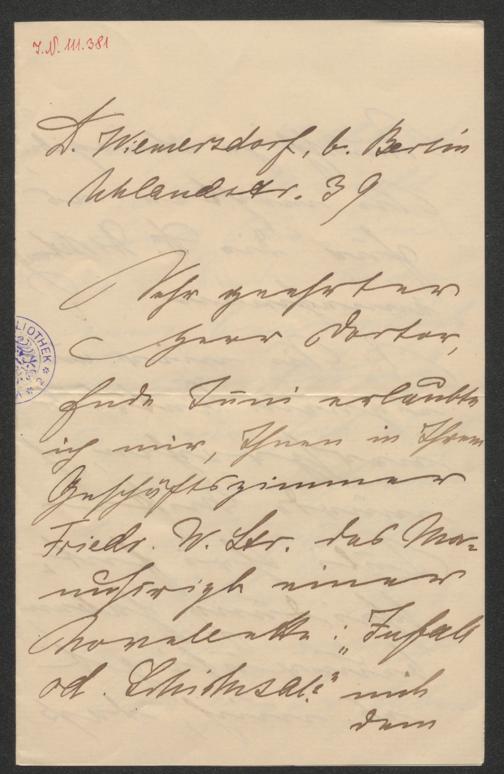 J.N. 111.381
D. Wilmersdorf, b. Berlin
Uhlandstr. 39
Sehr geehrter
Herr Doctor,
Ende Juni erlaubte
ich mir, Ihnen in Ihrem
Geschäftszimmer
Friedr. W. Str. das Ma-
nuskript einer
Novellette: „Zufall
od. Schicksal?" mit
dem
LIOTHEK